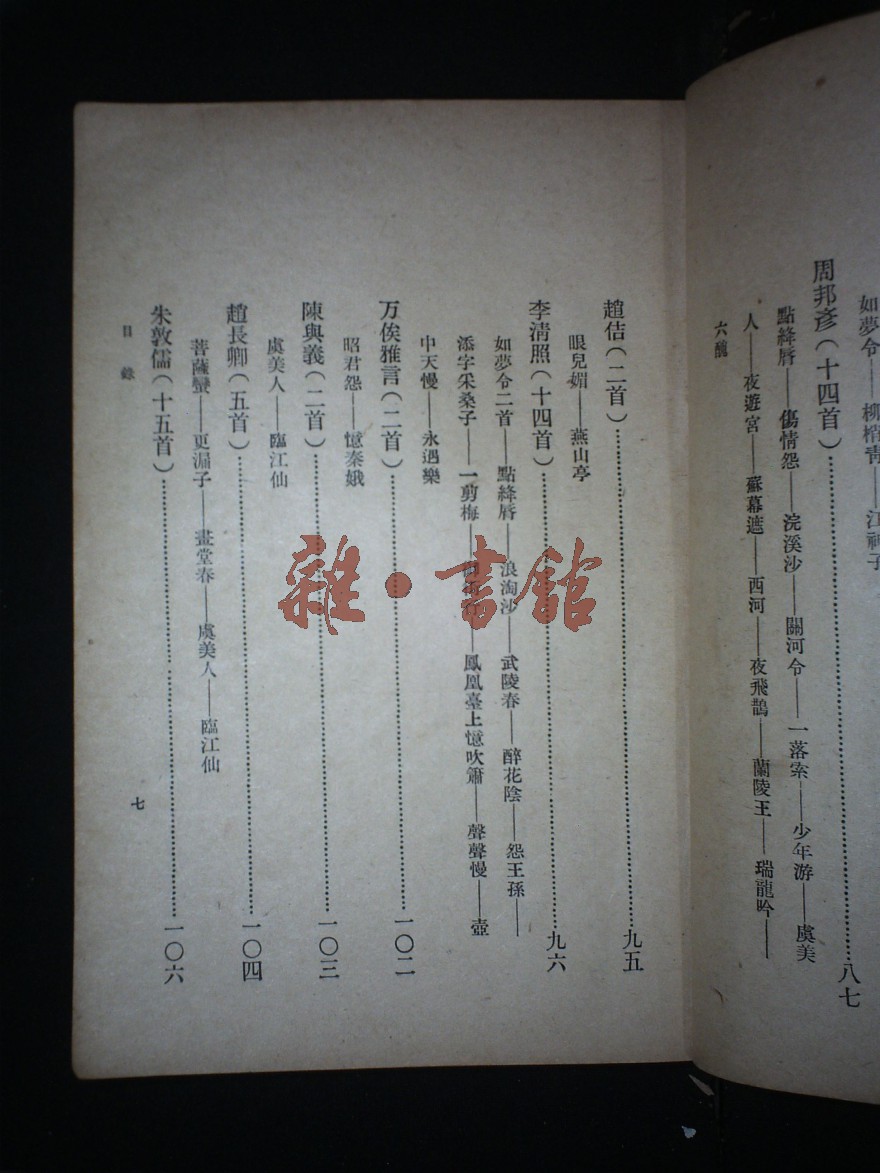 如夢令——柳梢青——江神子
周邦彥(十四首)……八七
點絳唇——傷情怨——浣溪沙——關河令——一落索——少年游——虞美
人——夜遊宮——蘇幕遮——西河——夜飛鵲——蘭陵王——瑞龍吟——
六醜
趙佶(二首)……九五
眼兒媚——燕山亭
李清照(十四首)……九六
如夢令二首——點絳唇——浪淘沙——武陵春——醉花陰——怨王孫——
添字采桑子——一剪梅——鳳凰臺上憶吹簫——聲聲慢——壺
中天慢——永遇樂
万俟雅言(二首)……一〇二
昭君怨——憶秦娥
陳與義(二首)……一〇三
虞美人——臨江仙
趙長卿(五首)……一〇四
菩薩蠻——更漏子——畫堂春——虞美人——臨江仙
朱敦儒(十五首)……一〇六
目錄
七
雜·書館